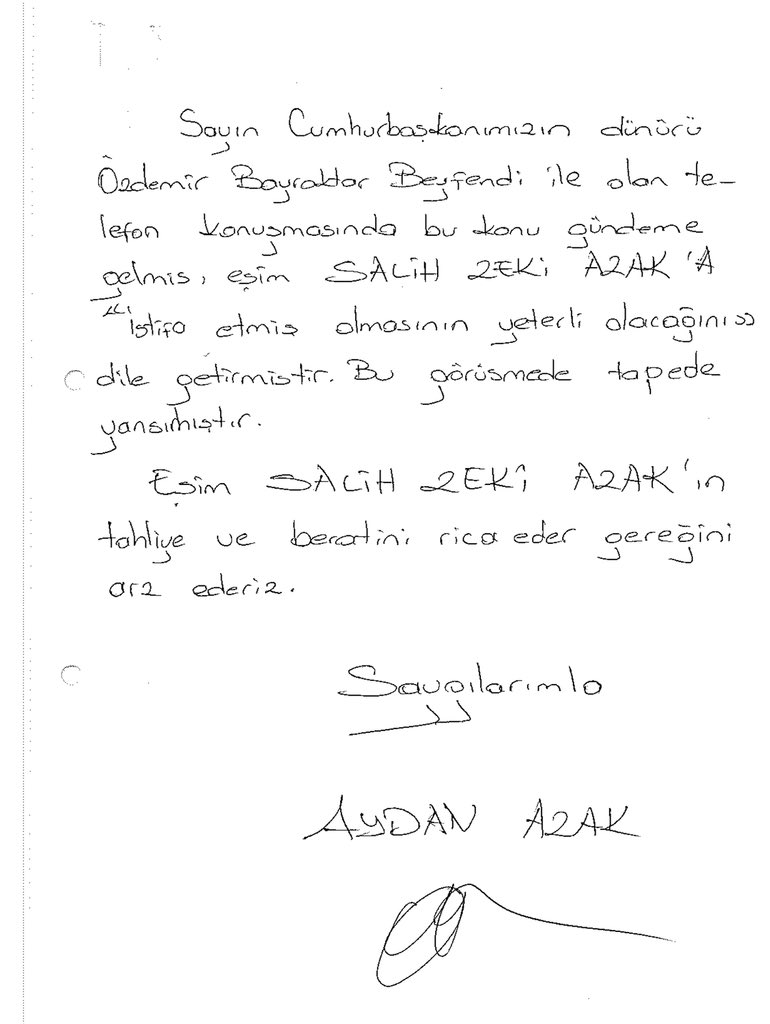 Sayın Cumhurbaşkanımızın dünürü
Özdemir Bayraktar Beyfendi ile olan te-
lefon konuşmasında bu konu gündeme
gelmiş, eşim SALİH ZEKİ AZAK'A
"İstifa etmiş olmasının yeterli olacağını"
dile getirmiştir. Bu görüşmede tapede
yansımıştır.
Eşim SALİH ZEKİ AZAK'ın
tahliye ve beratini rica eder gereğini
arz ederiz.
Saygılarımla
AYDAN AZAK